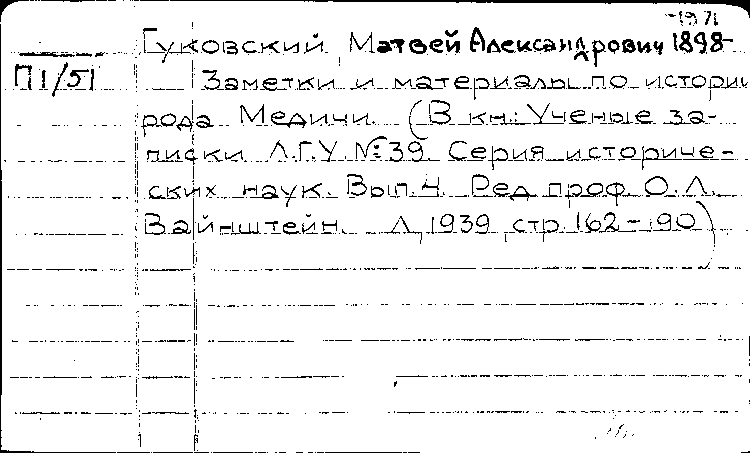 -1971
Гуковский, Матвей Александрович 1898-
П1/51
Заметки и материалы по истории
рода Медичи. (В кн.: Ученые за-
писки Л.Г.У. №39. Серия историче-
ских наук. Вып. 4. Ред. проф. О.Л.
Вайнштейн. Л, 1939, стр. 162-190)